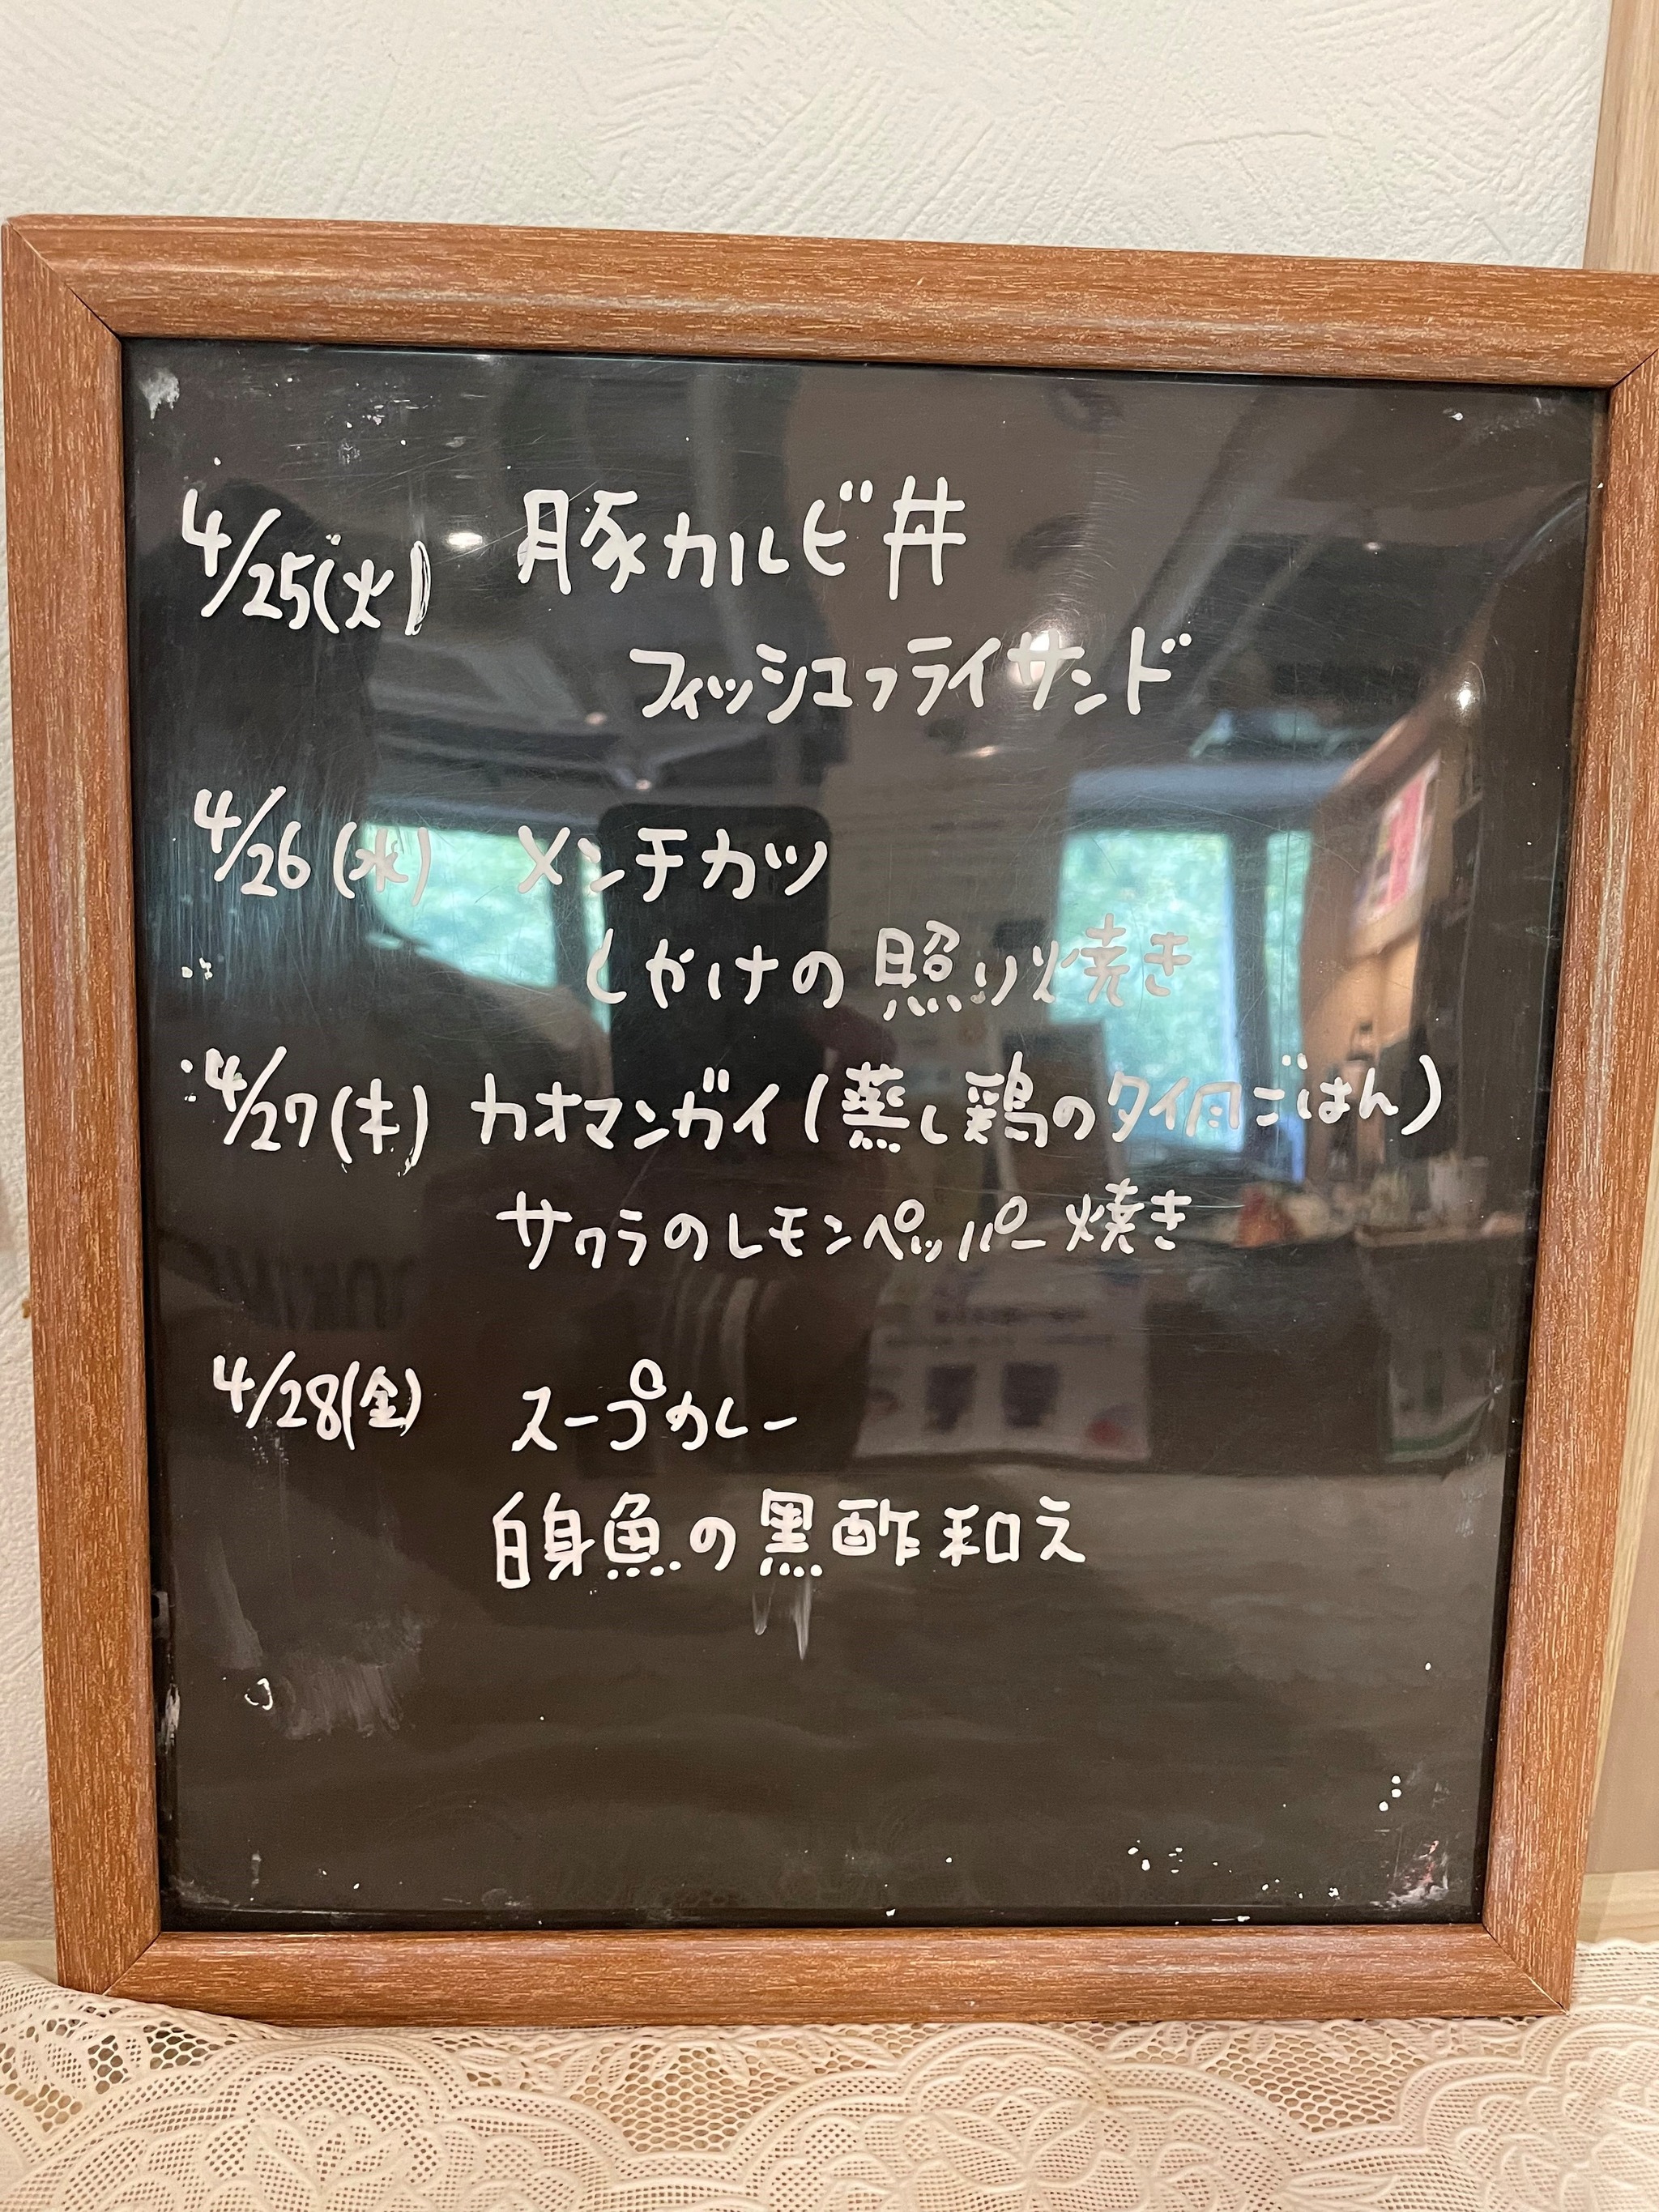 4/25(火) 豚カルビ丼
フィッシュフライサンド
4/26(水) メンチカツ
しゃけの照り焼き
4/27(木) カオマンガイ(蒸し鶏のタイ風ごはん)
サワラのレモンペッパー焼き
4/28(金) スープカレー
白身魚の黒酢和え